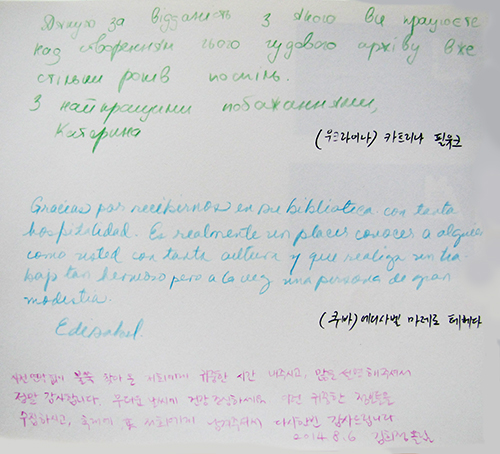 Дякую за відданість з якою ви працюєте
над створенням цього чудового архіву вже
стільки років поспіль.
З найкращими побажаннями,
Катерина
(우크라이나) 카트리나 필유크
Gracias por recibirnos en su biblioteca con tanta
hospitalidad. Es realmente un placer conocer a alguien
como usted con tanta cultura y que realiza un tra-
bajo tan hermoso pero a la vez una persona de gran
modestia.
Edisabel.
(쿠바) 에디사벨 마레로 테헤다
사전 연락 없이 불쑥 찾아온 저희에게 귀중한 시간 내주시고, 많은 설명 해주셔서
정말 감사합니다. 무더운 날씨에 건강 조심하세요. 이런 귀중한 정보들을
수집하시고, 후대에 저희에게 남겨주셔서 다시한번 감사드립니다
2014.8.6 김희정